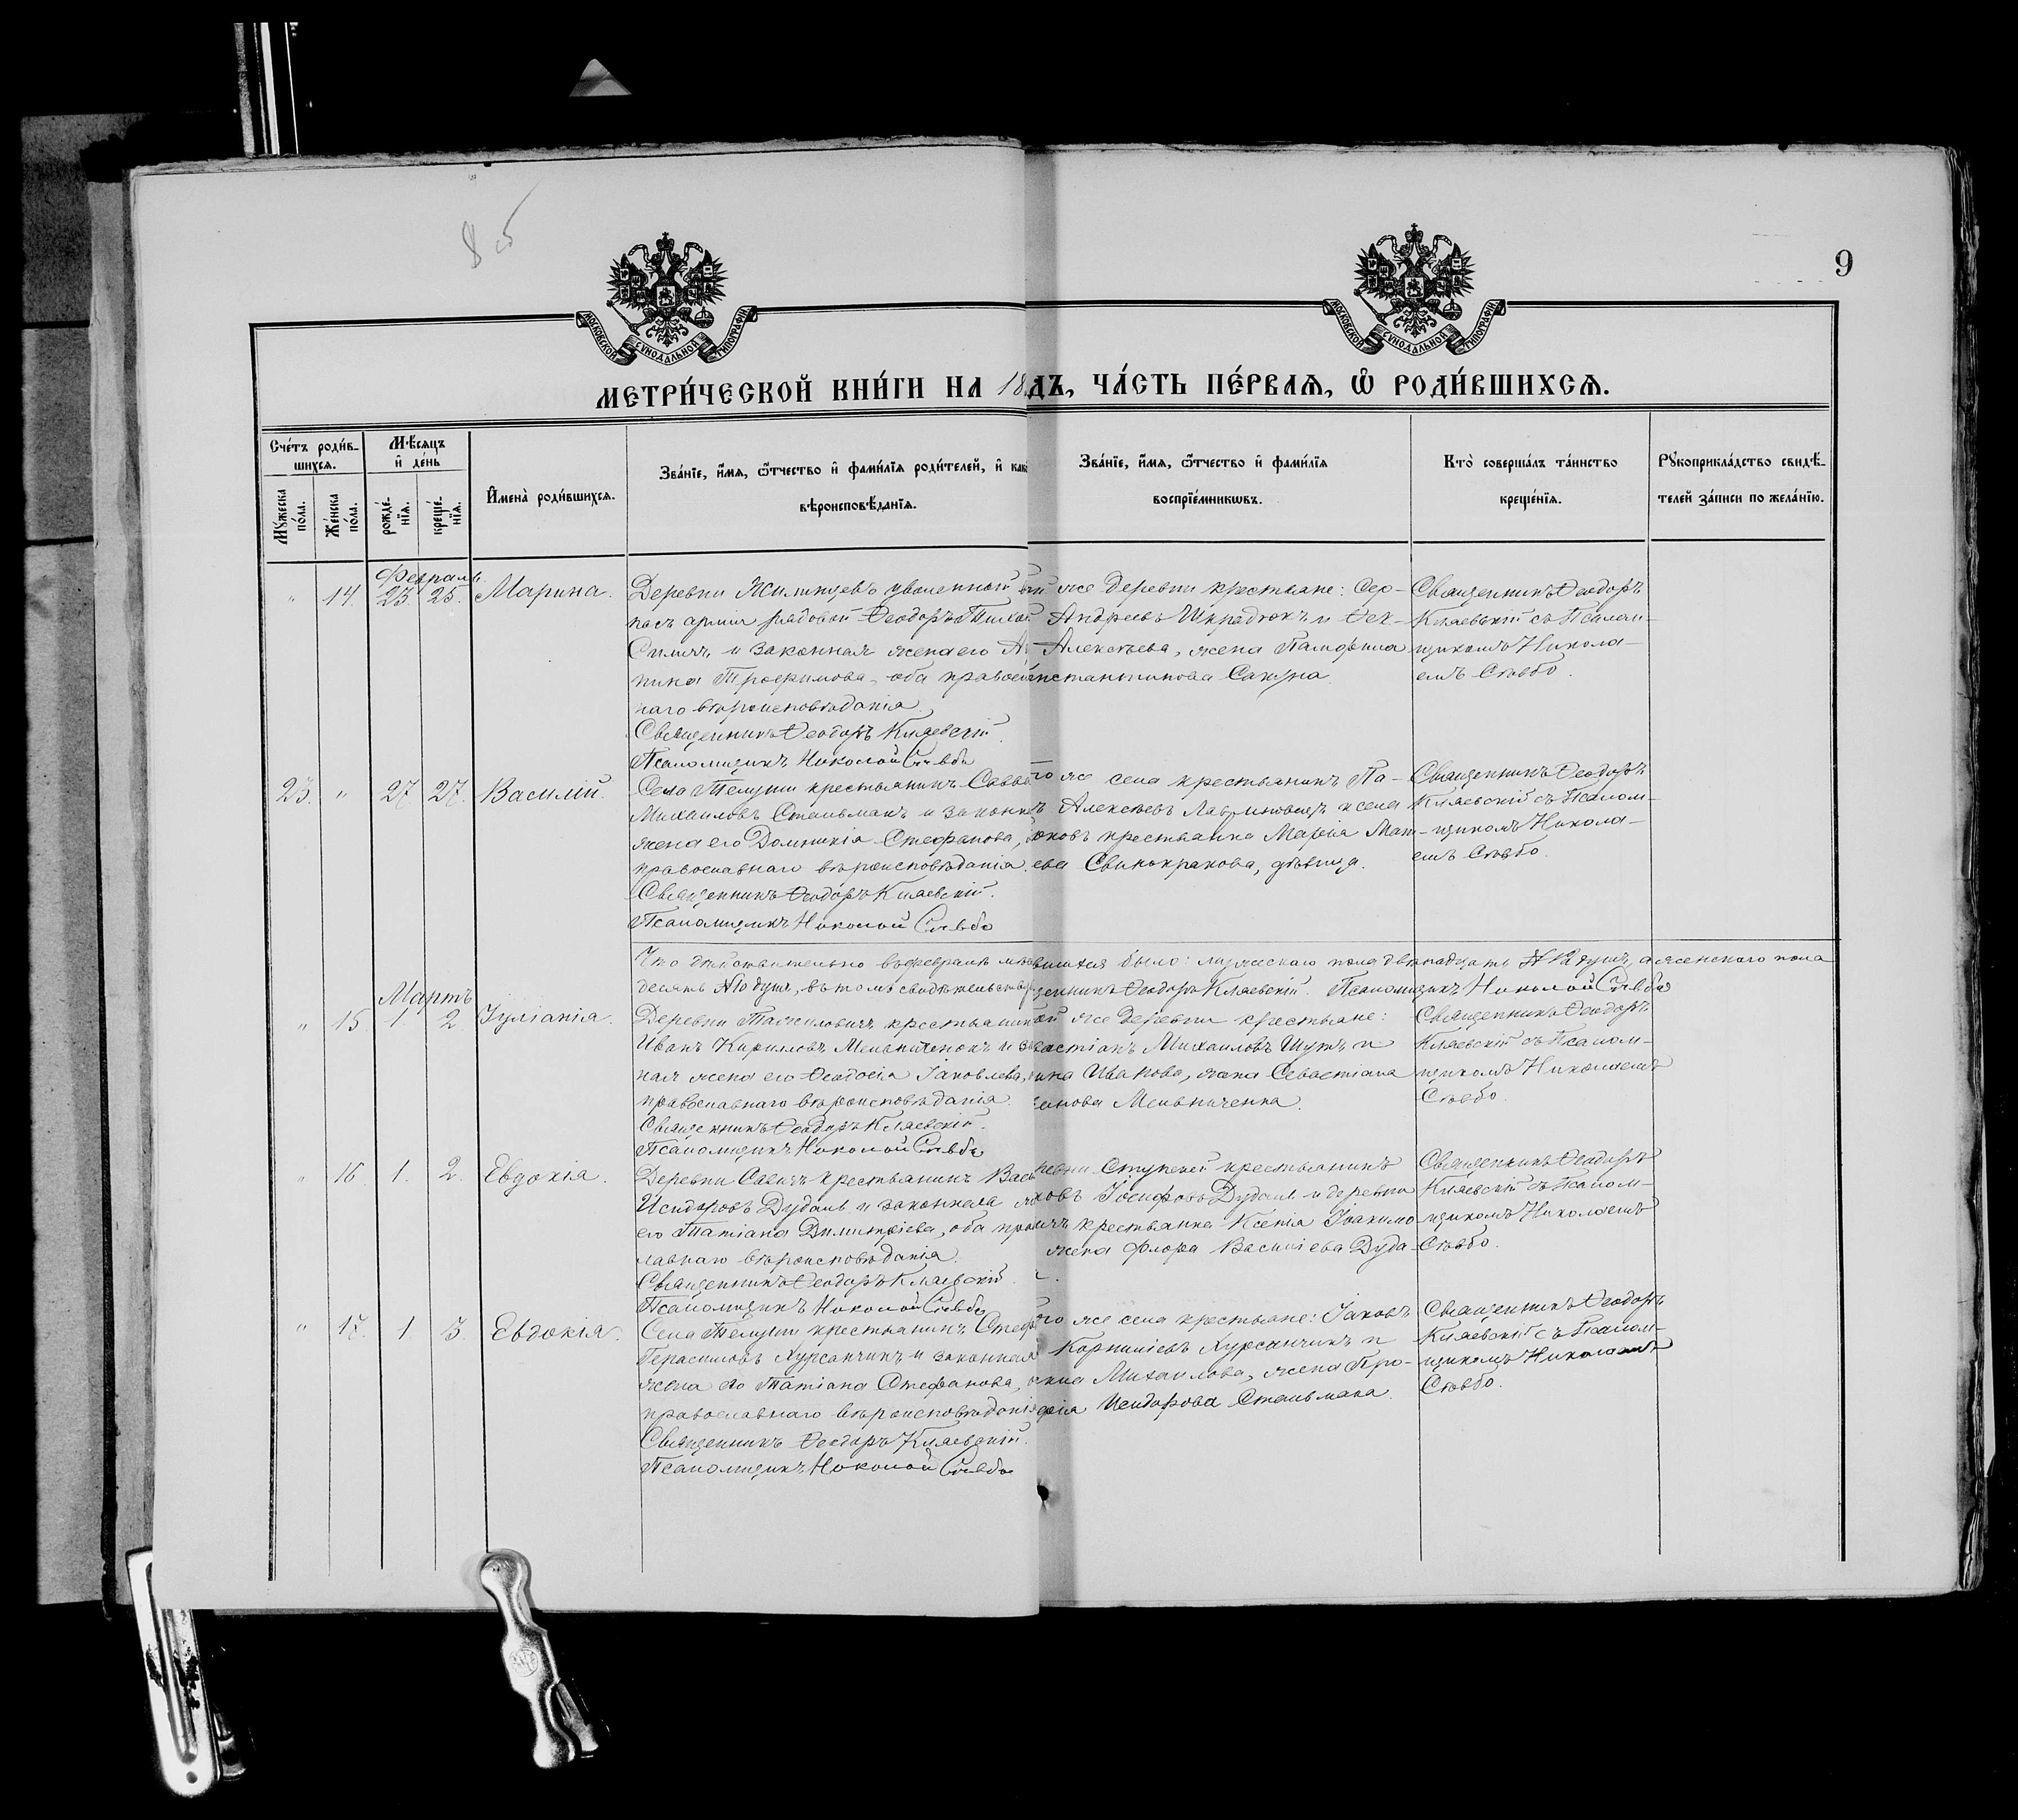 8 об
9
МОСКОВСКОЙ СѴНОДАЛЬНОЙ ТИПОГРАФІИ
МОСКОВСКОЙ СѴНОДАЛЬНОЙ ТИПОГРАФІИ
МЕТРИ́ЧЕСКОЙ КНИ́ГИ НА 18
ДЪ, ЧА́СТЬ ПЕ́РВАЯ, Ѡ РОДИ́ВШИХСЯ.
Сче́тъ роди́в-
шихся.
Мѣ́сяцъ
и҆ де́нь
Мꙋ́жеска
по́ла.
Же́нска
по́ла.
рожде́-
нїя.
креще́-
нїя.
И҆мена̀ роди́вшихся.
Зва́нїе, и҆́мя, ѻ҆́тчество и҆ фами́лїя роди́телей, и҆ как
вѣроисповѣ́данїя.
Зва́нїе, и҆́мя, ѻ҆́тчество и҆ фами́лїя
воспрїе́мникѡвъ.
Кто̀ соверша́лъ та́инство
креще́нїя.
Рꙋкоприкла́дство свидѣ́-
телей за́писи по жела́нїю.
Февраль
" 14. 23. 25. Марина.
Деревни уволенный
пасъ арміи рядовой Ѳеодоръ Тихо
и законная жена его А
Трофимова, оба право
наго вѣроисповѣданія.
Священникъ Ѳеодоръ Княевскій
Псаломщикъ Николай Сѣвбо
же деревни крестьяне: Сер-
Андреевъ Шкрадюкъ и Ѳек-
Алексѣева, жена Памфила
нстантинова Сакуна.
Священникъ Ѳеодоръ
Княевскій съ Псалом-
щикомъ Никола-
емъ Сѣвбо.
23. " 27 27. Василій.
Села Телуши крестьянинъ Савва
Михаиловъ Стельмахъ и законн
жена его Домникія Стефанова,
православнаго вѣроисповѣданія.
Священникъ Ѳеодоръ Княевскій.
Псаломщикъ Николай Сѣвбо
го же села крестьянинъ Па-
Алексѣевъ и села
крестьянка Марія Мат-
ева Свинокракова, дѣвица.
Священникъ Ѳеодоръ
Княевскій съ Псалом-
щикомъ Никола-
емъ Сѣвбо.
Что дѣйствительно въ февралѣ мѣ
вшихся было: мужескаго пола двѣнадцать № 12 душъ, а женскаго пола
десять №10 душъ, въ томъ свидѣтельству
щенникъ Ѳеодоръ Княевскій. Псаломщикъ Николай Сѣвбо
Мартъ
" 15. 1 2. Іуліанія.
Деревни крестьянин
Иванъ Кириловъ Мельниченокъ и за
ная жена его Ѳеодосія Іаковлева,
православнаго вѣроисповѣданія.
Священникъ Ѳеодоръ Княевскій.
Псаломщикъ Николай Сѣвбо
ой же деревни крестьяне:
вастіанъ Михаиловъ Шутъ и
Иванова, жена Севастіана
Мельниченка.
Священникъ Ѳеодоръ
Княевскій съ Псалом-
щикомъ Николаемъ
Сѣвбо.
" 16. 1. 2. Евдокія.
Деревни крестьянинъ Васи
Исидоровъ Дудаль и законная
его Татіана Димитріева, оба пра
лавнаго вѣроисповѣданія.
Священникъ Ѳеодоръ Княевскій.
Псаломщикъ Николай Сѣвбо
ревни Ступеней крестьянинъ
Іосифовъ Дудаль и деревни
крестьянка Ксенія Іоакимо
жена Флора Василіева Дуда-
Священникъ Ѳеодоръ
Княевскій съ Псалом-
щикомъ Николаемъ
Сѣвбо.
" 17. 1 3. Евдокія.
Села Телуши крестьянинъ Стеф
Герасимовъ Хурсанчикъ и законная
жена его Татіана Стефанова,
православнаго вѣроисповѣданія
Священникъ Ѳеодоръ Княевскій.
Псаломщикъ Николай Сѣвбо
го же села крестьяне: Іаковъ
Корниліевъ Хурсанчикъ и
Михаилова, жена Про-
Исидорова Стельмаха.
Священникъ Ѳеодоръ
Княевскій съ Псалом-
щикомъ Николаемъ
Сѣвбо.